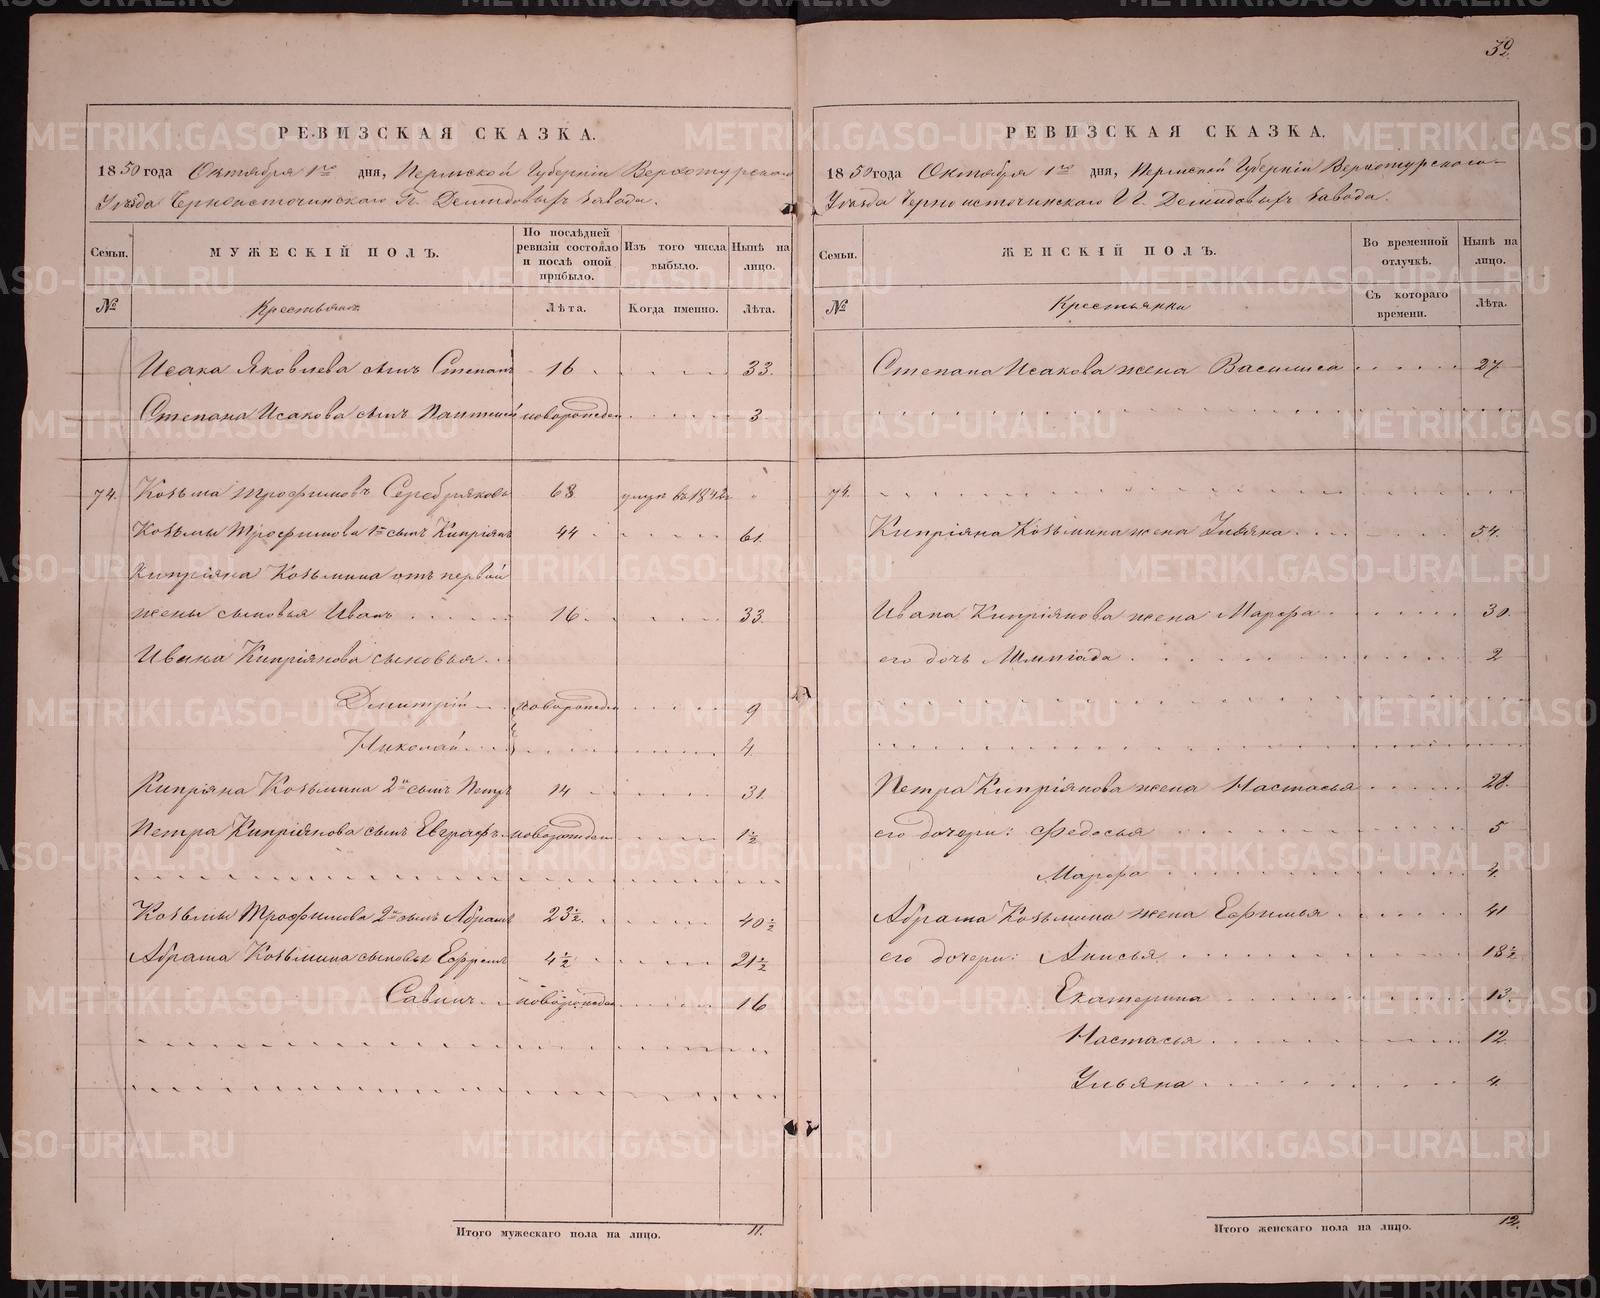 39.
РЕВИЗСКАЯ СКАЗКА.
1850 года Октября 1го дня, Пермской Губерніи Верхотурского
Уѣзда Черноисточинскаго Гг. Демидовыхъ завода.
Семьи. МУЖЕСКІЙ ПОЛЪ. По послѣдней ревизіи состояло и послѣ оной прибыло. Изъ того числа выбыло. Нынѣ на лицо.
№ Крестьяне Лѣта. Когда именно. Лѣта.
Исака Яковлева сынъ Степанъ 16 33.
Степана Исакова сынъ Пантелей новорожден 3
74. Козьма Трофимовъ Серебряковъ 68 умре въ 1842 г "
Козьмы Трофимова 1й сынъ Кипріянъ 44 61.
Кипріяна Козьмина отъ первой
жены сыновья Иванъ 16. 33.
Ивана Кипріянова сыновья
Дмитрій новорожден 9
Николай 4.
Кипріяна Козьмина 2й сынъ Петръ 14 31.
Петра Кипріянова сынъ Евграфъ новорожден 1½
Козьмы Трофимова 2й сынъ Абрамъ 23½. 40½
Абрама Козьмина сыновья Ефремъ 4½ 21½
Савинъ новорожден 16
Итого мужескаго пола на лицо. 11.
РЕВИЗСКАЯ СКАЗКА.
1850 года Октября 1го дня, Пермской Губерніи Верхотурскаго
Уѣзда Черноисточинскаго Гг. Демидовыхъ завода.
Семьи. ЖЕНСКІЙ ПОЛЪ. Во временной отлучкѣ. Нынѣ на лицо.
№ Крестьянки Съ котораго времени. Лѣта.
Степана Исакова жена Василиса 27
74.
Кипріяна Козьмина жена Ульяна 54.
Ивана Кипріянова жена Марфа 30.
его дочь Олимпіада 2
Петра Кипріянова жена Настасья 28.
его дочери: Федосья 5
Марфа 4.
Абрама Козьмина жена Ефимья 41
его дочери: Анисья 18½
Екатерина 13.
Настасья 12
Ульяна 4.
Итого женскаго пола на лицо. 12.
METRIKI.GASO-URAL.RU